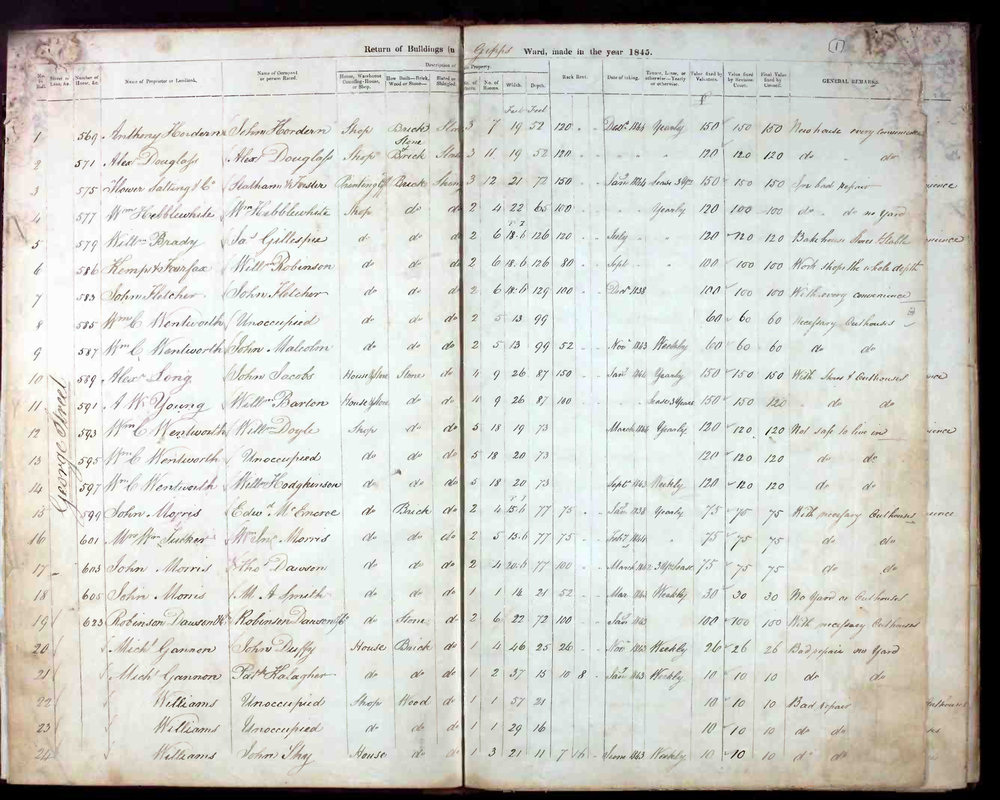 Return of Buildings in Gipps Ward, made in the year 1845. 1
Description of Property.
Name of Proprietor or Landlord. Name of Occupant or person Rated. House, Warehouse Counting-House, or Shop. How Built—Brick, Wood or Stone— Slated or Shingled. No. of Floors. No. of Rooms. Width. Depth. Rack Rent. Date of taking. Tenure, Lease, or otherwise—Yearly or otherwise. Value fixed by Valuators. Value fixed by Revision Court. Final Value fixed by Council. GENERAL REMARKS.
Feet Feet £
George Street
1 569 Anthony Hordern John Hordern Shop Brick 3 7 19 52 120 Decr 1844 Yearly 150 150 150 New house every convenience
2 571 Alexr Douglass Alexr Douglass Shop Stone & Brick 3 11 19 52 120 " " 120 120 120 do do
3 575 Flower Salting & Co Statham & Forster Printing Off Brick 3 12 21 72 150 Jany 1844 Lease 3 Yrs 150 150 150 In bad repair
4 577 Wm Hebblewhite Wm Hebblewhite Shop do do 2 4 22 65 100 " Yearly 120 100 100 do do no Yard
5 579 Willm Brady Jas Gillespie do do do 2 6 18.6 126 120 July " 120 120 120 Bakehouse Stores Stable
6 586 Kemp & Fairfax Willm Robinson do do do 2 6 18.6 126 80 Sept " 100 100 100 Work shops the whole depth
7 583 John Fletcher John Fletcher do do do 2 6 18.6 129 100 Decr 1838 100 100 100 With every convenience
8 585 Wm C Wentworth Unoccupied do do do 2 5 13 99 60 60 60 necessary Outhouses
9 587 Wm C Wentworth John Malcolm do do do 2 5 13 99 52 Novr 1843 Weekly 60 60 60 do do
10 589 Alexr Long John Jacobs House & Store Stone do 4 9 26 87 150 Jany 1844 Yearly 150 150 150 With Stores & Outhouses
11 591 A. W. Young Willm Barton House & Store do do 4 9 26 87 100 Lease 3 Years 150 150 120 do do
12 593 Wm C Wentworth Willm Doyle Shop do do 5 18 19 73 March 1844 Yearly 120 120 120 Not safe to live in
13 595 Wm C Wentworth Unoccupied do do do 5 18 20 73 120 120 120 do do
14 597 Wm C Wentworth Willm Hodgkinson do do do 5 18 20 73 Septr 1843 Weekly 120 120 120 do do
15 599 John Morris Edwd McEncroe do Brick do 2 4 15.6 77 75 Jany 1838 Yearly 75 75 75 With necessary Outhouses
16 601 Mrs Wm Tucker Morris do do do 2 5 13.6 77 75 Feby 1844 " 75 75 75 do do
17 603 John Morris Thos Dawson do do do 2 4 20.6 77 100 March 3 Yrs Lease 75 75 75 do do
18 605 John Morris M. A Smith do do do 1 1 14 21 52 Mar 1843 Weekly 30 30 30 No Yard or Outhouses
19 623 Robinson Dawson & Co Robinson Dawson & Co do Stone do 2 6 22 72 100 Jany 100 100 100 With necessary Outhouses
20 Michl Gannon John Duffy House Brick do 1 4 46 25 26 Novr 1843 Weekly 26 26 26 Bad repair no Yard
21 Michl Gannon Patk Kalagher do do do 1 2 37 15 10 8 Jany 1843 Weekly 10 10 10 do do
22 Williams Unoccupied Shop Wood do 1 1 57 21 10 10 10 Bad repair
23 Williams Unoccupied do do do 1 1 29 16 10 10 10 do do
24 Williams John House do do 1 3 21 11 7 16 June 1843 Weekly 10 10 10 do do